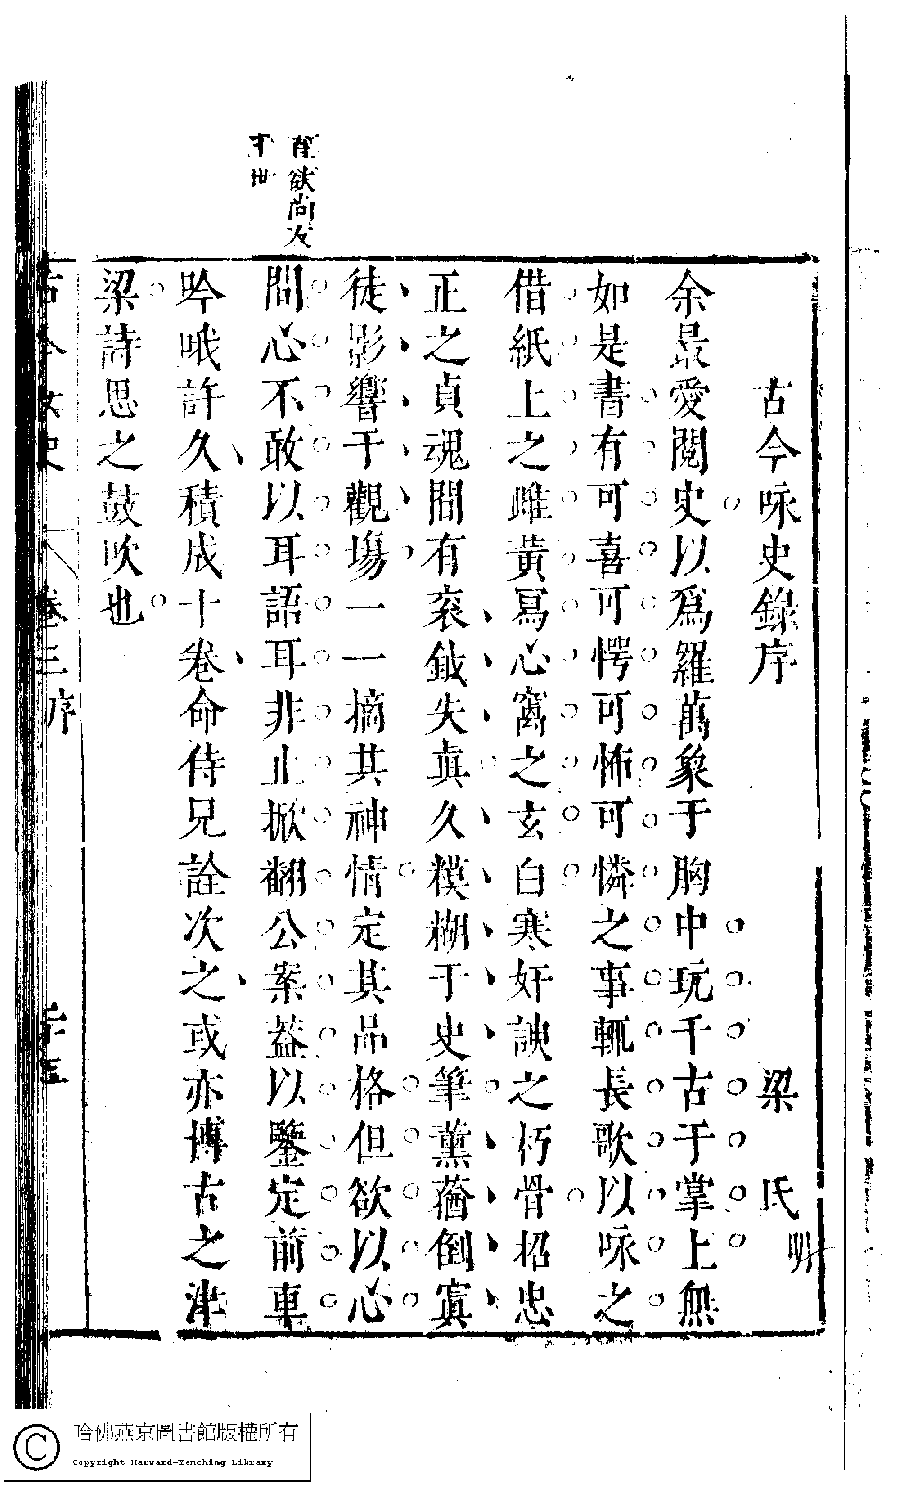 古今咏史錄序
梁 氏 明
余最愛閱史以爲羅萬象于胸中玩千古于掌上無
如是書有可喜可愕可怖可憐之事輒長歌以咏之
借紙上之雌黃寫心窩之玄白寒奸諛之朽骨招忠
正之貞魂間有袞鉞失真久模糊于史筆薰蕕倒寘
徒影響于觀塲一一摘其神情定其品格但欲以心
問心不敢以耳語耳非止掀翻公案葢以鑒定前車
吟哦許久積成十卷命侍兒詮次之或亦博古之津
梁詩思之鼓吹也
欲尚友
千世
古今女史 卷三序
哈佛燕京圖書館版權所有
Copyright Harvard-Yenching Library